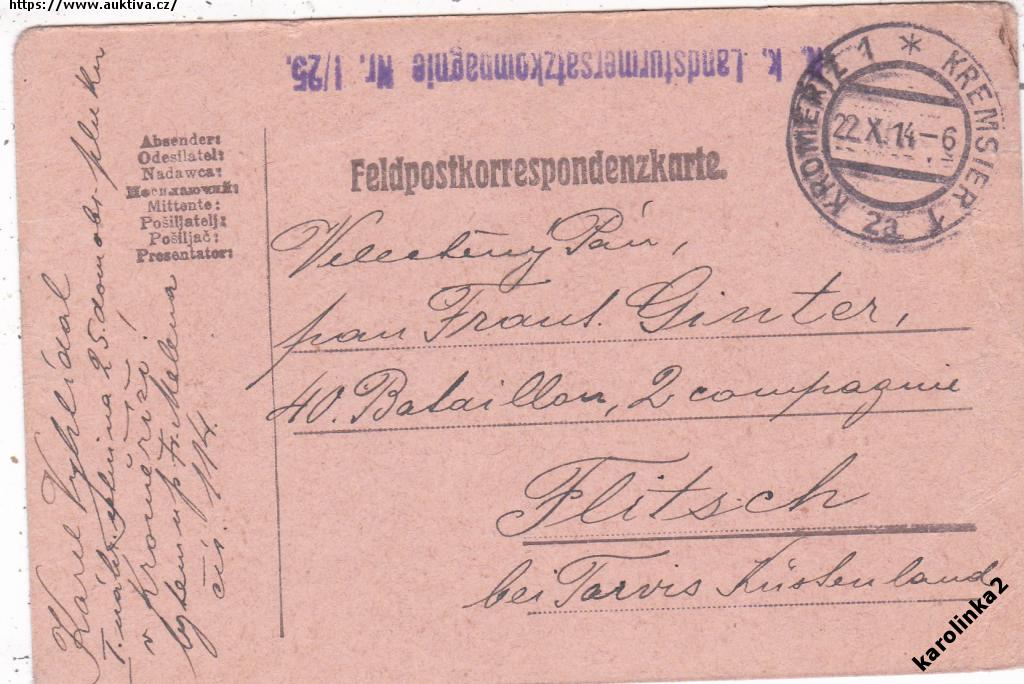 https://www.auktiva.cz/
K. k. Landsturmersatzkompagnie Nr. I/25.
KROMĚŘÍŽ 1 * KREMSIER 1
22.X.14-6
2a
Absender:
Odesílatel:
Nadawca:
Mittente:
Pošiljatelj:
Pošiljač:
Presentator:
Feldpostkorrespondenzkarte.
Velectěný Pán,
pan Frant. Ginter,
40. Bataillon, 2 compagnie
Flitsch
bei Tarvis Küstenland
Karel Vyhlídal
1. náhr. setnina 25. domobr. pluku
v Kroměříži!
bytem u p. Fr. Malena
čís. 114.
karolinka2